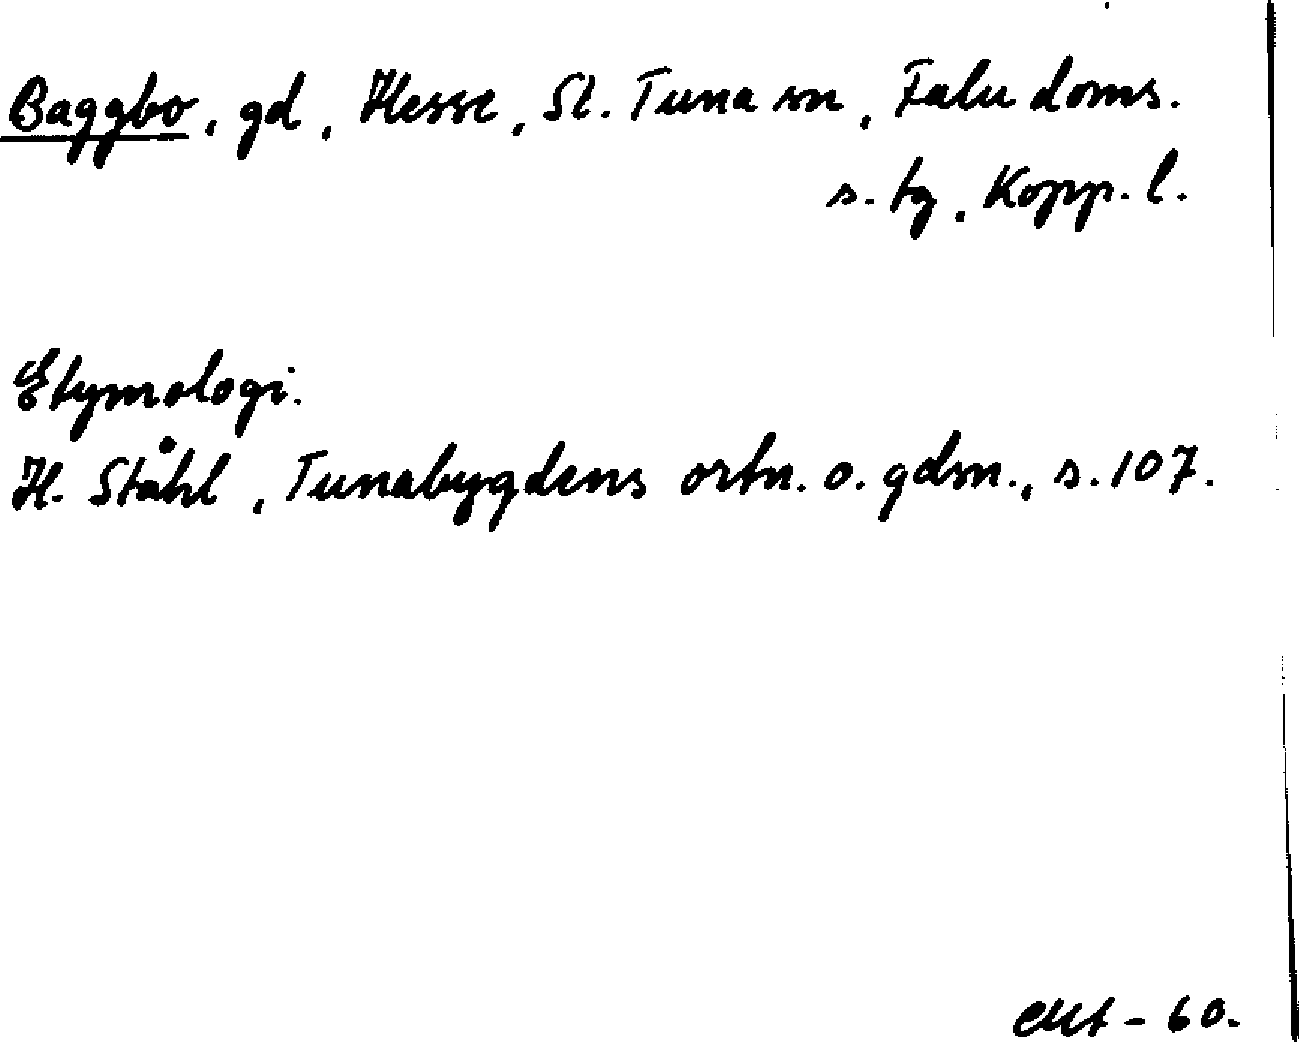 Baggbo, gd, Hesse, St. Tuna sn, Falu doms.
s. tg, Kopp. l.
Etymologi.
H. Ståhl, Tunabygdens ortn. o. gdsn., s. 107.
- 60.